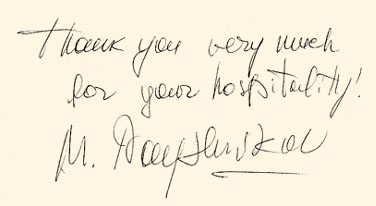 Thank you very much
for your hospitality!
M.